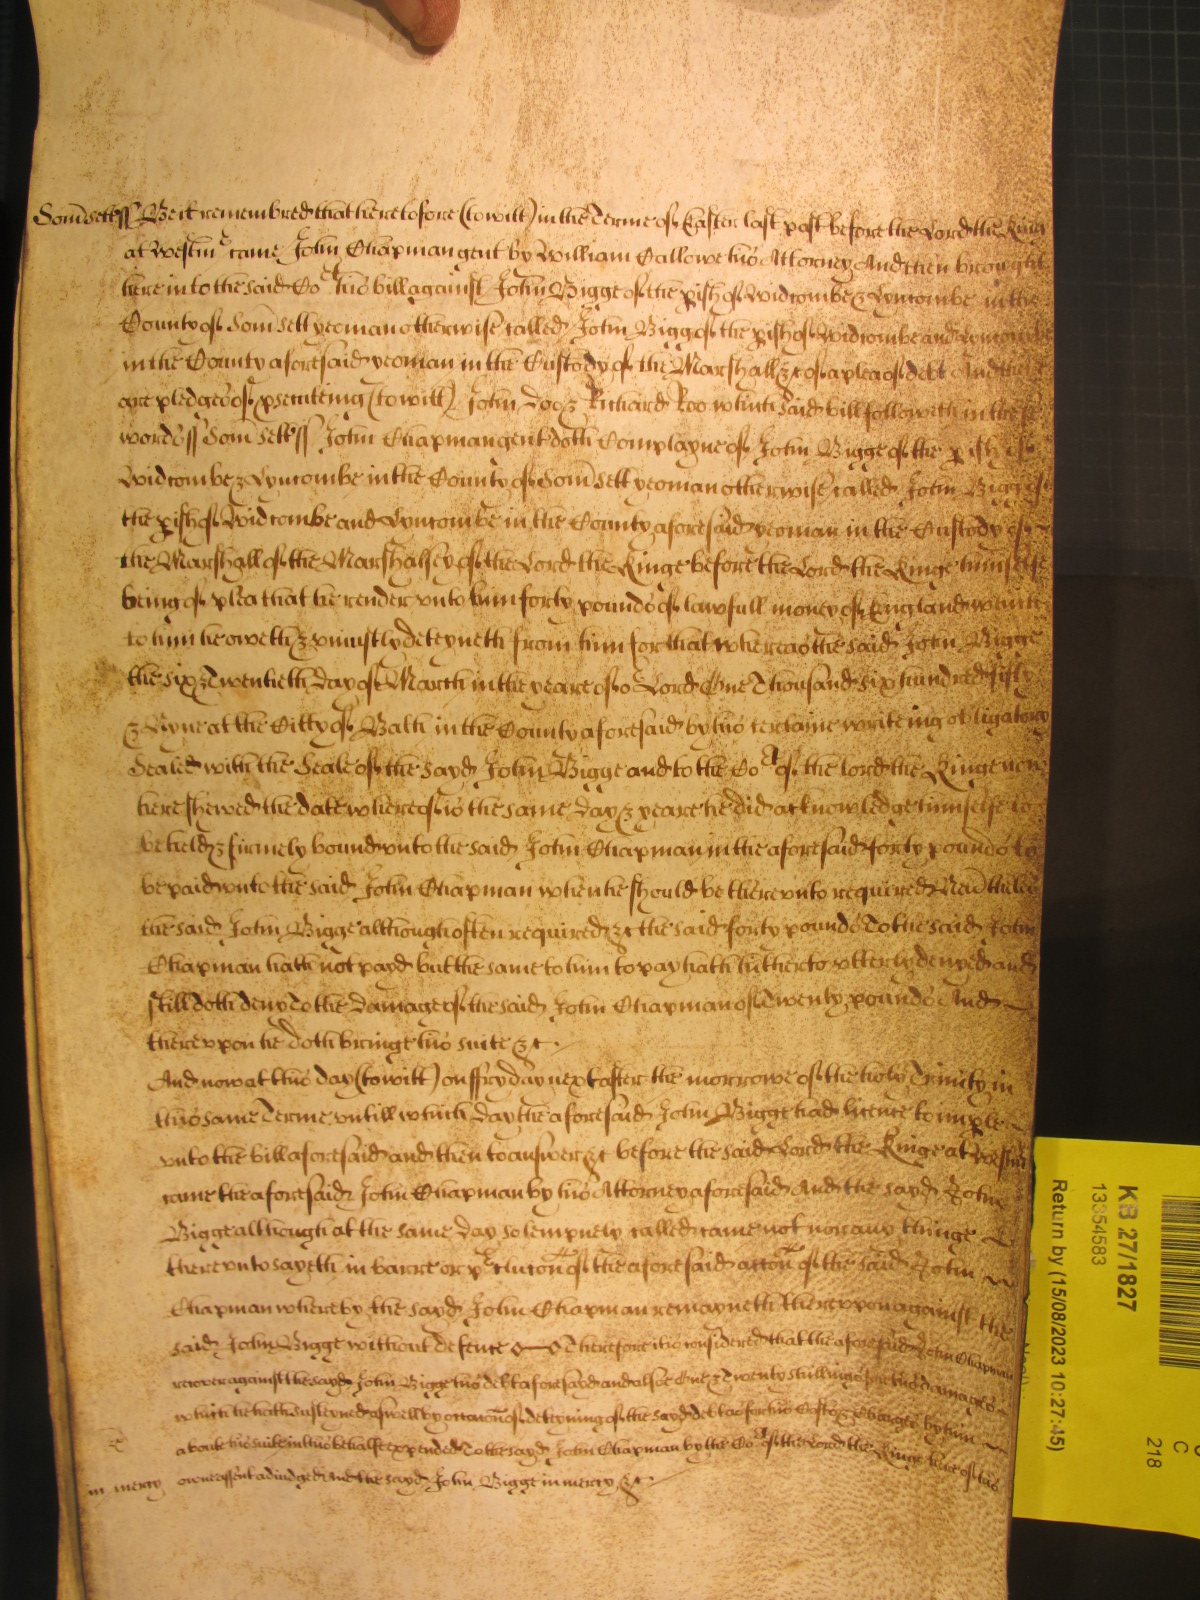 Som̃sett ss Be it remembred that heretofore (to witt) in the Terme of Easter last past before the Lord the King
at Westm̃ came John Chapman gent by William Callowe his Attorney And then brought
here into the said Cort his bill against John Bigge of the pish of Widcombe & Lyncombe in the
County of Som̃sett yeoman otherwise called John Bigg of the pish of Widcombe and Lyncombe
in the County aforesaid yeoman in the Custody of the Marshall &c of a plea of debt And there
are pledges of psecuteing (to witt) John Doo & Richard Roo which said bill followeth in these
words ss Som̃sett ss John Chapman gent doth Complayne of John Bigge of the pish of
Widcombe & Lyncombe in the County of Som̃sett yeoman otherwise called John Bigg of
the pish of Widcombe and Lyncombe in the County aforesaid yeoman in the Custody of
the Marshall of the Marshalsey of the Lord the Kinge before the Lord the Kinge himselfe
being of plea that he render unto him forty pounds of lawfull money of England which
to him he oweth & uniustly deteyneth from him for that whereas the said John Bigge
the six & twentieth day of March in the yeare of or Lord One Thousand six hundred fifty
& Nyne at the Citty of Bath in the County aforesaid by his certaine writeing obligatory
Sealed with the Seale of the sayd John Bigge and to the Cort of the lord the Kinge now
here shewed the date whereof is the same day & yeare he did acknowledge himselfe to
be held & firmely bound unto the said John Chapman in the aforesaid forty pounds to
be paid unto the said John Chapman when he should be thereunto required Neũtheles
the said John Bigge although often required &c the said forty pounds To the said John
Chapman hath not payd but the same to him to pay hath hitherto utterly denyed and
still doth deny To the damage of the said John Chapman of Twenty pounds And
thereupon he doth bringe his suite &c
And now at this day (to witt) on ffryday next after the morrowe of the holy Trinity in
this same Terme untill which day the aforesaid John Bigge had licence to imple
unto the bill aforesaid and then to answer &c before the said Lord the Kinge at Westm̃
came the aforesaid John Chapman by his Attorney aforesaid And the sayd John
Bigge although at the same day solempnely called came not nor any thinge
thereunto sayeth in barre or of the aforesaid accõn of the said John
Chapman whereby the sayd John Chapman remayneth thereupon against the
said John Bigge without defence Therefore it is considered that the aforesaid John Chapman
recover against the sayd John Bigge his debt aforesayd and alsoe One & Twenty shillings for his damages
which he hath susteyned aswell by occasion of deteyning of the sayd debt as for his Costs & Charges by him
aboute his suite in this behalfe expended To the sayd John Chapman by the Cort of the Lord the Kinge here of his
in mercy owne assent adiudged And the sayd John Bigge in mercy &c
KB 27/1827
13354583
Return by (15/08/2023 10:27:45)
C
218